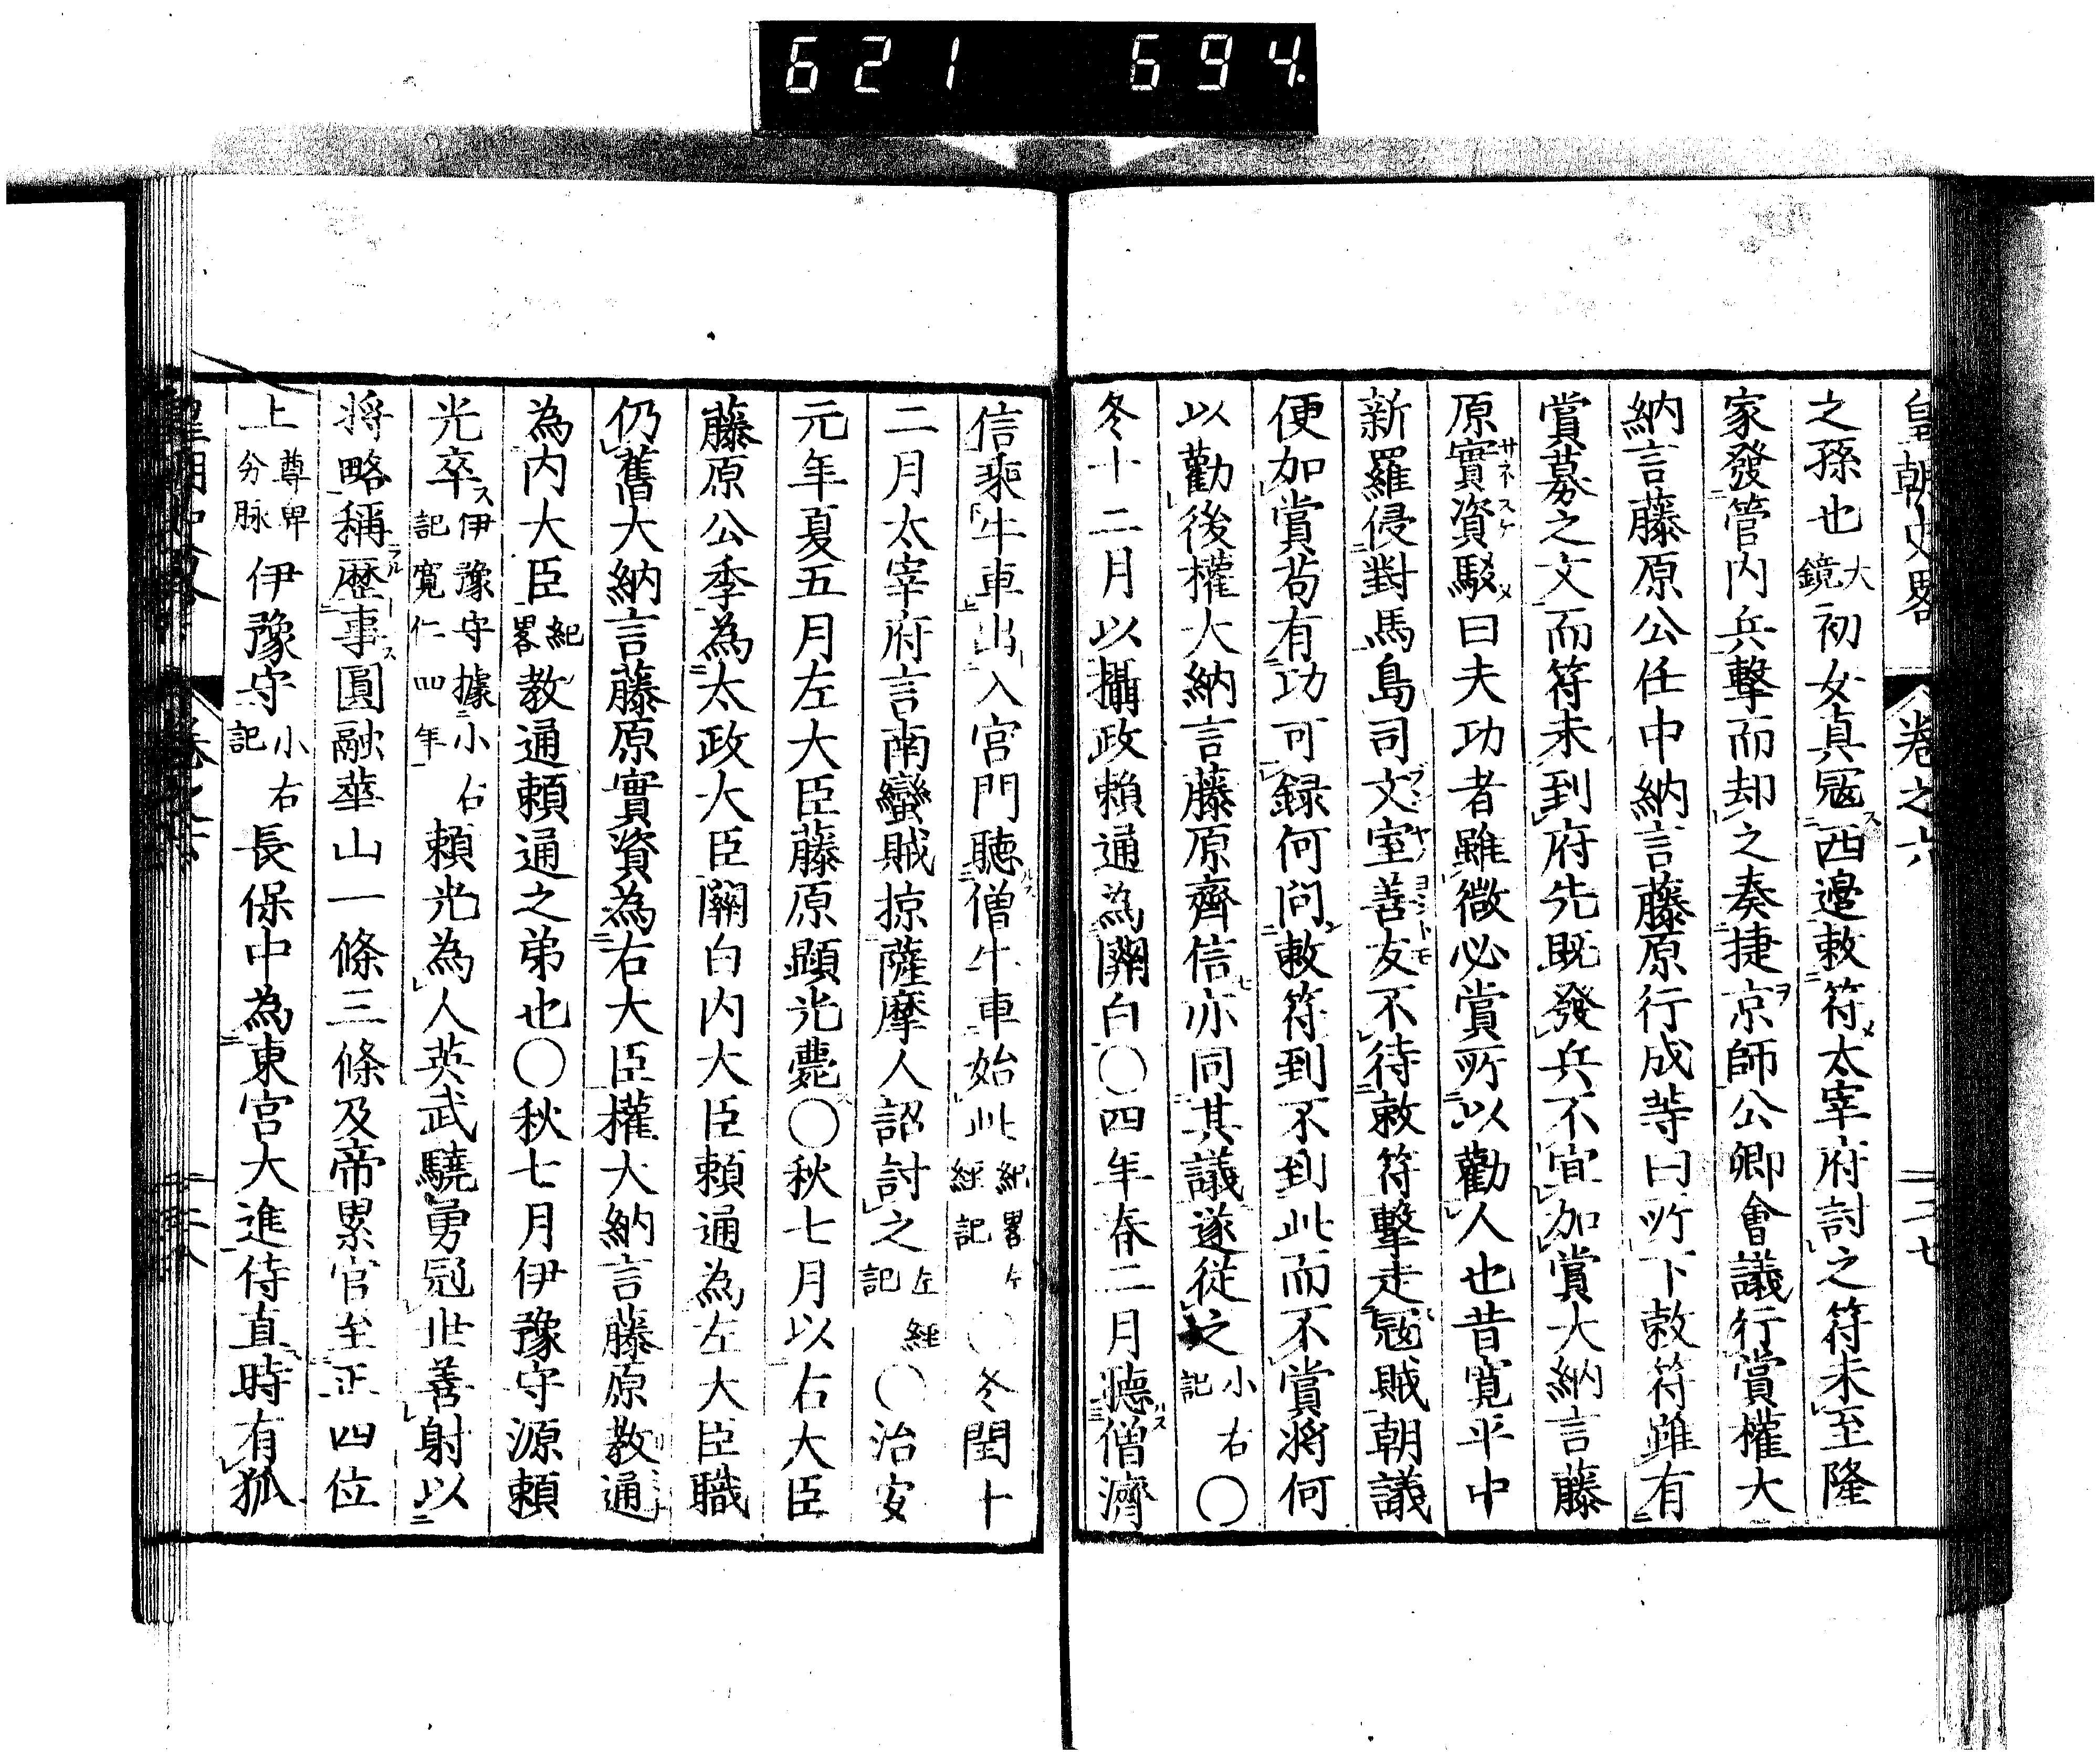 621 694.
皇朝史畧 卷之六 二十七
之孫也大鏡初女真寇西邉敕符太宰府討之符未至隆
家發管内兵擊而却之奏捷京師公卿會議行賞權大
納言藤原公任中納言藤原行成等曰所下敕符雖有
賞募之文而符未到府先既發兵不宜加賞大納言藤
原實資駁曰夫功者雖微必賞所以勸人也昔寛平中
新羅侵對馬島司文室善友不待敕符擊走寇賊朝議
便加賞苟有功可録何問敕符到不到此而不賞將何
以勸後權大納言藤原齊信亦同其議遂從之小右記〇
冬十二月以攝政賴通為關白〇四年春二月聽僧濟
信乘牛車出入宮門聽僧牛車始此紀畧左經記〇冬閏十
二月太宰府言南蠻賊掠薩摩人詔討之左經記〇治安
元年夏五月左大臣藤原顯光薨〇秋七月以右大臣
藤原公季為太政大臣關白内大臣賴通為左大臣職
仍舊大納言藤原實資為右大臣權大納言藤原教通
為内大臣紀畧教通賴通之弟也〇秋七月伊豫守源賴
光卒伊豫守據小右記寛仁四年賴光為人英武驍勇冠世善射以
將略稱歴事圓融華山一條三條及帝累官至正四位
上尊卑分脉伊豫守小右記長保中為東宮大進侍直時有狐